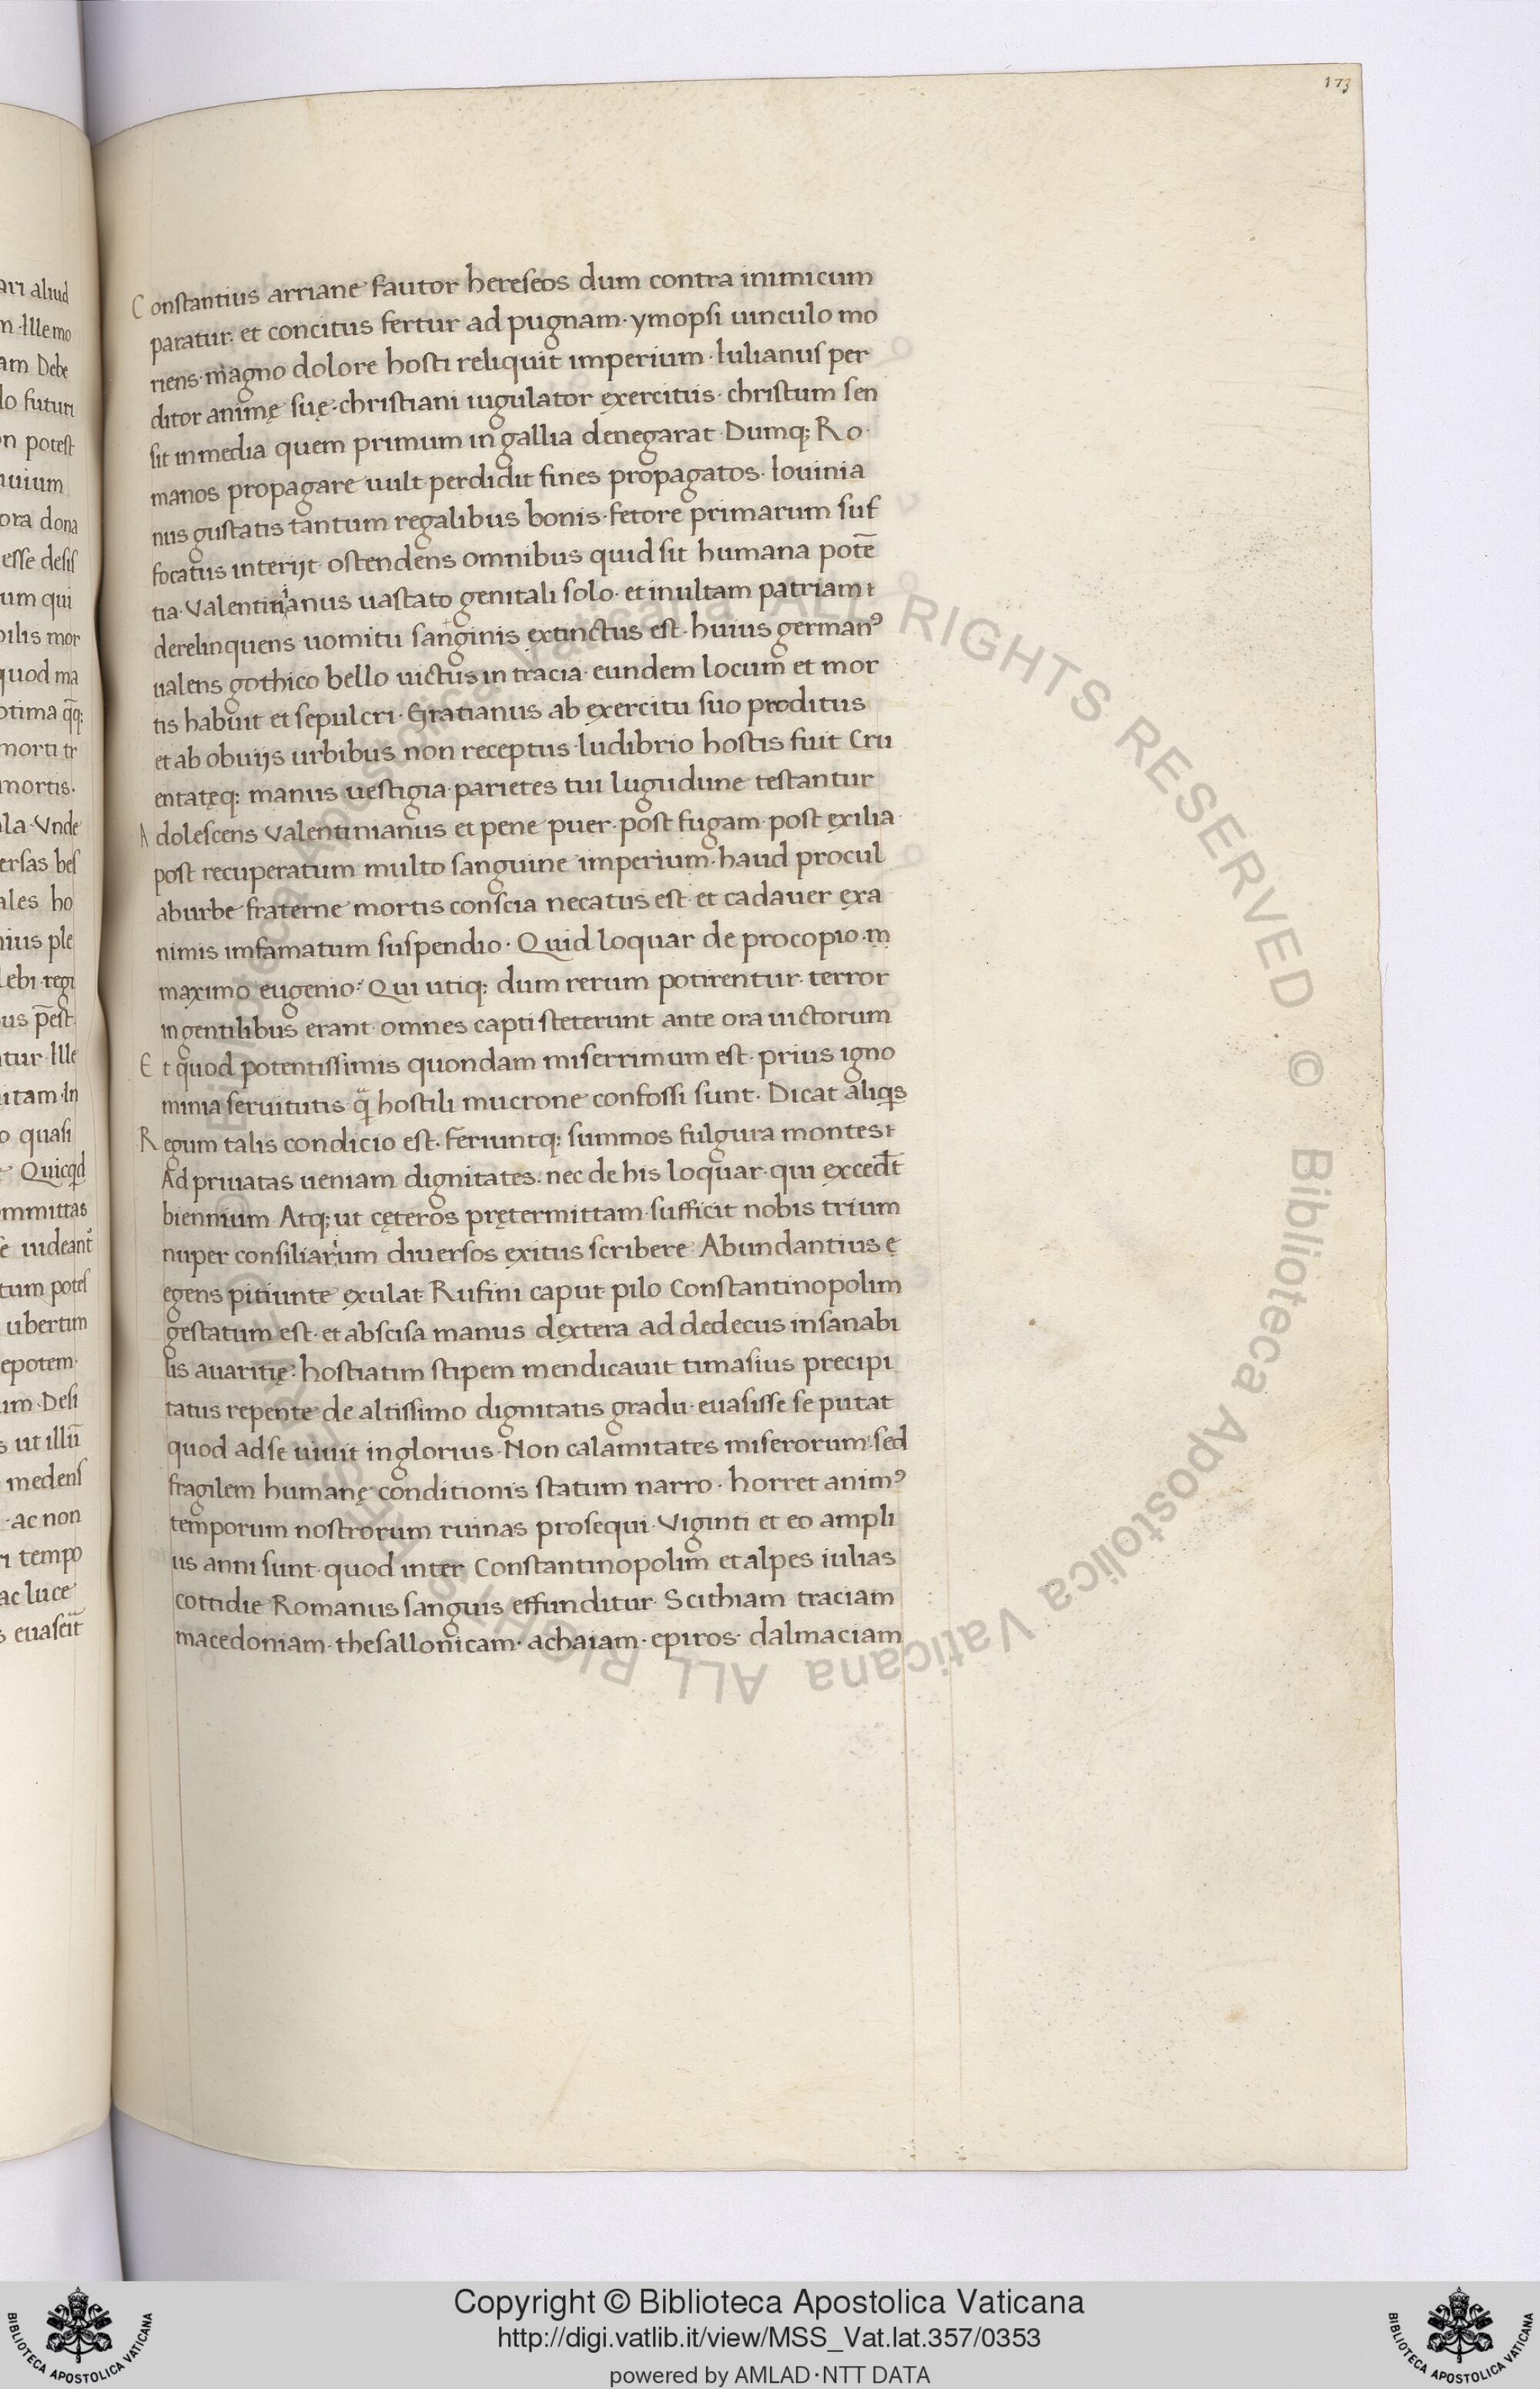 173
ari aliud
m · Ille mo
am Debe
lo futuri
on potest
uuium
ora dona
esse desiſ
um qui
bilis mor
quod ma
otima q̄q;
morti tr
mortis·
la· Vnde
ersas beſ
ales ho
nius ple
lebi· regi
us p̄est·
tur· Ille
uitam· In
o quasi
Quicqd
ommittas
e uideant᷑
tum poteſ
ubertim
epotem·
um· Desi
s ut illū
medenſ
· ac non
ri tempo
ac luce
s euaserit
Constantius arriane fautor hereseos dum contra inimicum
paratur· et concitus fertur ad pugnam· ymopsi uinculo mo
riens· magno dolore hosti reliquit imperium· Iulianus per
ditor animę suę· christiani iugulator exercitus· christum sen
sit in media quem primum in gallia denegarat· Dumq; Ro·
manos propagare uult· perdidit fines propagatos· Iouinia
nus gustatis tantum regalibus bonis· fetore prunarum suf
focatus interijt· ostendens omnibus quid sit humana potē
tia· Valentinianus uastato genitali solo· et inultam patriam
derelinquens uomitu sanginis extinctus est· huius germanꝰ
ualens gothico bello uictus in tracia· eundem locum et mor
tis habuit et sepulcri· Gratianus ab exercitu suo proditus
et ab obuijs urbibus non receptus· ludibrio hostis fuit Cru
entatęq: manus uestigia· parietes tui lugudune testantur
Adolescens Valentinianus et pene puer· post fugam· post exilia·
post recuperatum multo sanguine imperium· haud procul
ab urbe fraterne mortis conscia necatus est· et cadauer exa
nimis imfamatum suspendio· Quid loquar de procopio· m
maximo eugenio? Qui utiq: dum rerum potirentur· terror
in gentilibus erant· omnes capti steterunt ante ora uictorum
Et quod potentissimis quondam miserrimum est· prius igno
minia seruitutis· q̄ hostili mucrone confossi sunt· Dicat aliqs
Regum talis condicio est· feriuntq: summos fulgura montes
Ad priuatas ueniam dignitates· nec de his loquar· qui excedt̄
biennium· Atq; ut cęteros prętermittam· sufficit nobis trium
nuper consiliarium diuersos exitus scribere· Abundantius ę
egens pitiunte exulat· Rufini caput pilo Constantinopolim
gestatum est· et abscisa manus dextera ad dedecus insanabi
lis auaritię: hostiatim stipem mendicauit· timasius precipi
tatus repente de altissimo dignitatis gradu· euasisse se putat
quod ad se uiuit inglorius· Non calamitates miserorum· sed
fragilem humanę conditionis statum narro· horret animꝰ
temporum nostrorum ruinas prosequi· Viginti et eo ampli
us anni sunt· quod inter Constantinopolim et alpes iulias
cottidie Romanus sanguis effunditur· Scithiam traciam
macedoniam· thesallonicam· achaiam· epiros· dalmaciam
© Biblioteca Apostolica Vaticana ALL RIGHTS RESERVED © Biblioteca Apostolica Vaticana ALL RIGHTS RESERVED
Copyright © Biblioteca Apostolica Vaticana
http://digi.vatlib.it/view/MSS_Vat.lat.357/0353
powered by AMLAD·NTT DATA
BIBLIOTECA APOSTOLICA VATICANA
BIBLIOTECA APOSTOLICA VATICANA